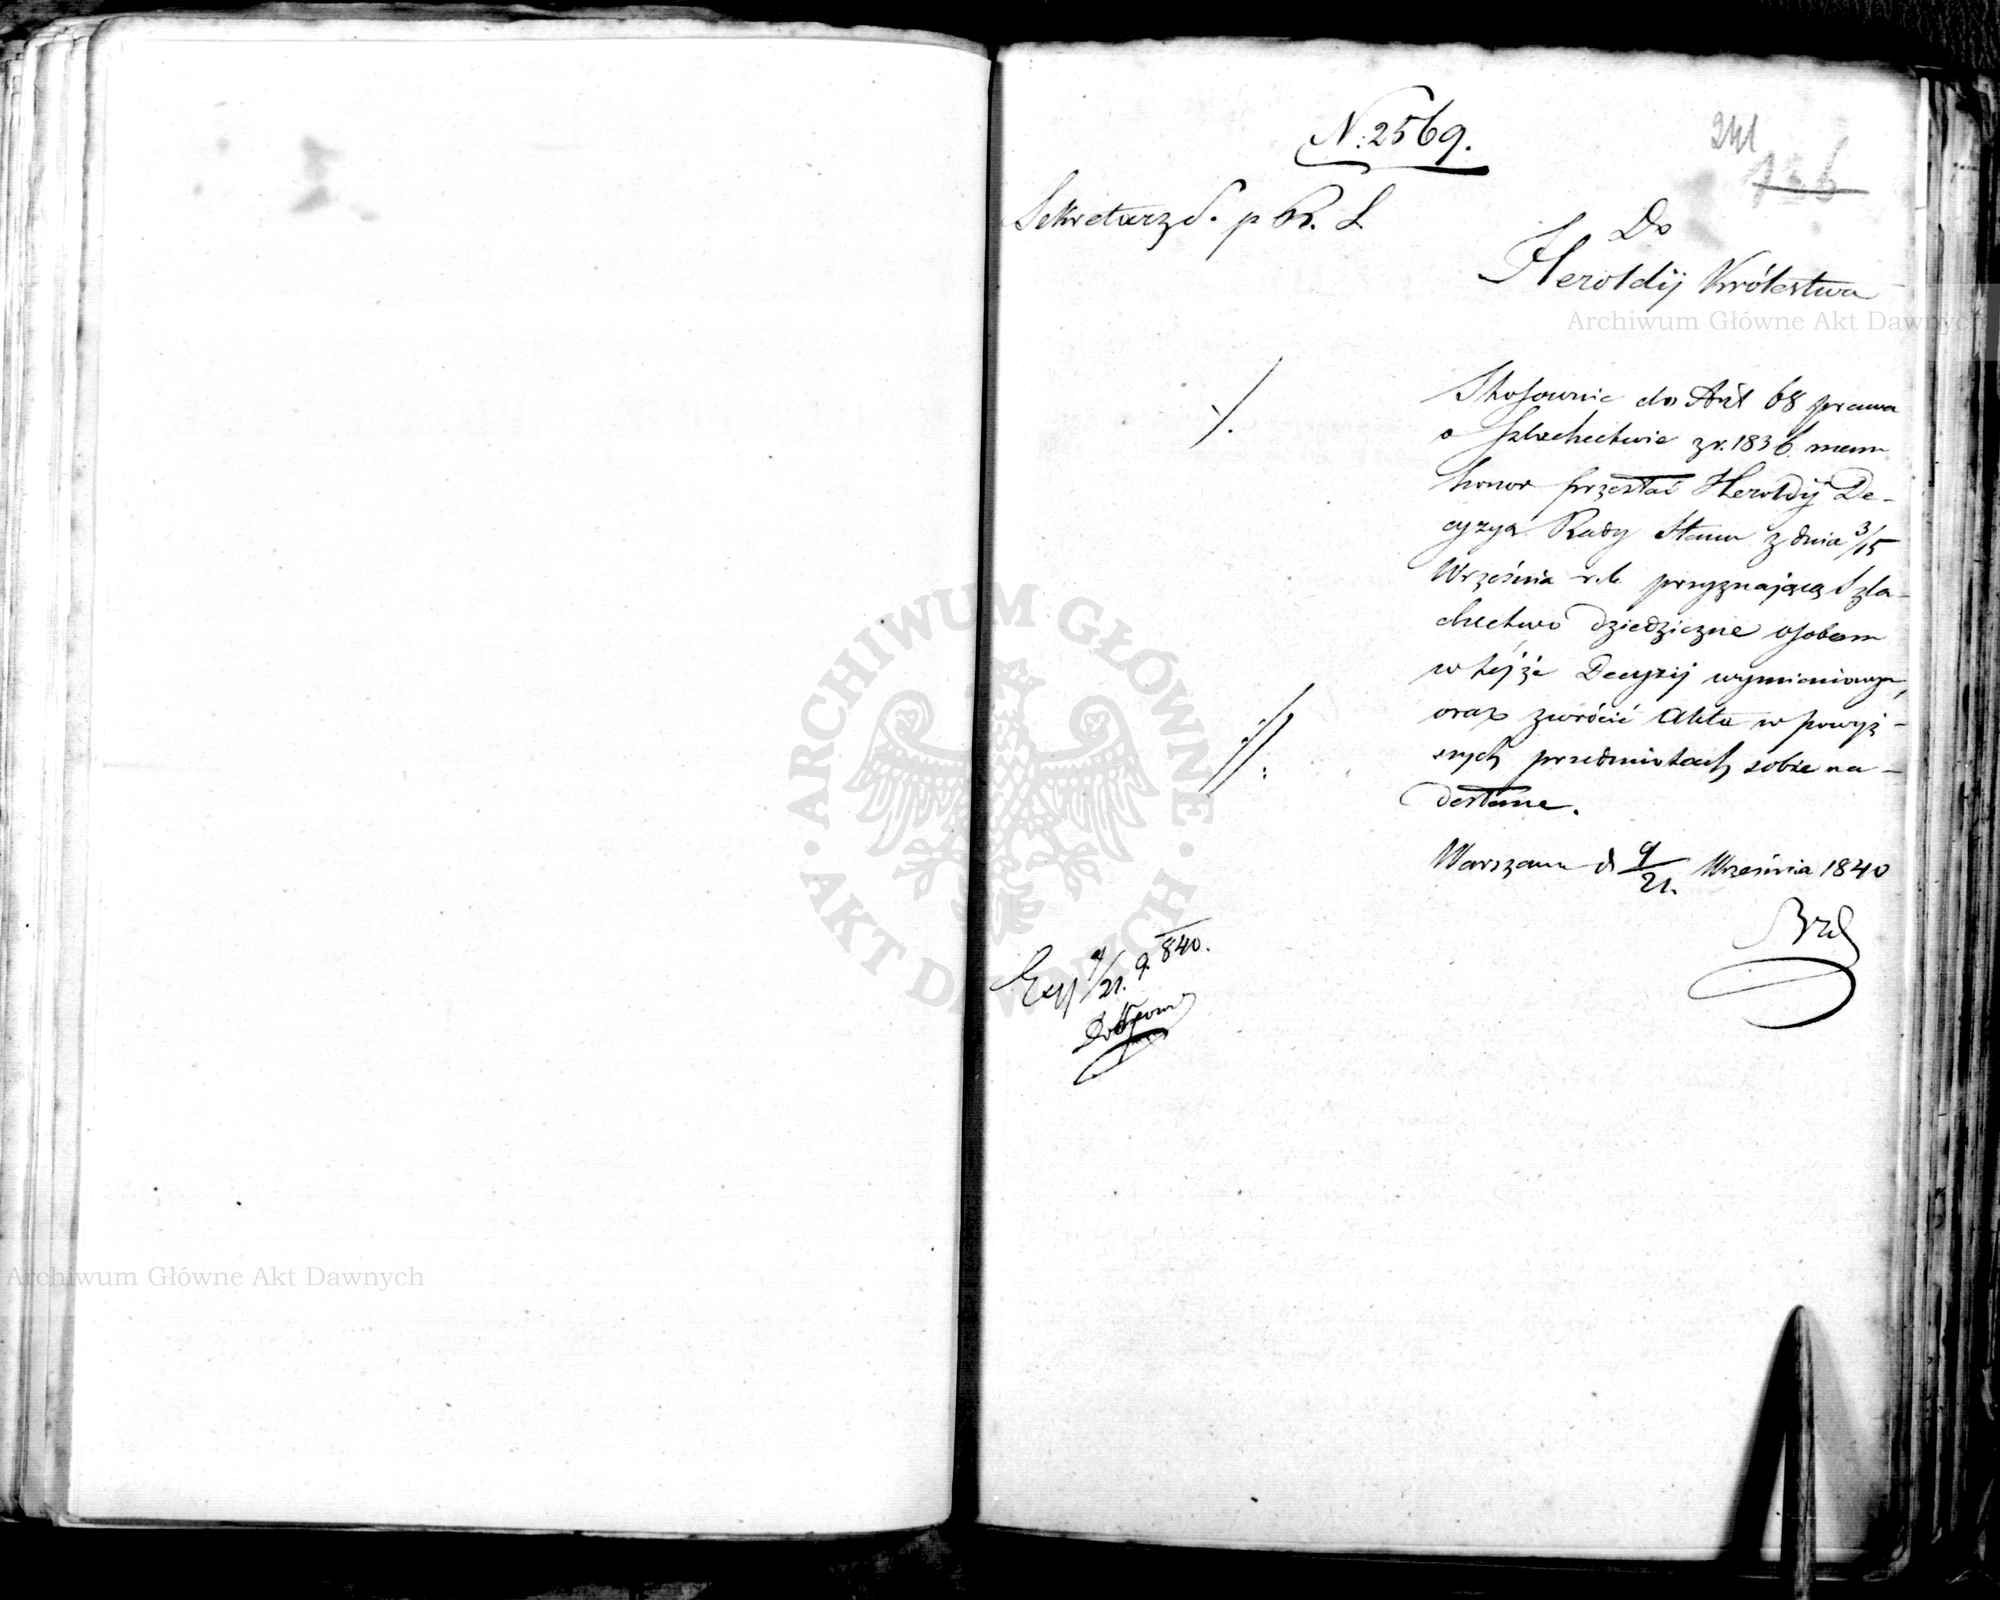 N. 2569.
241
136
Sekretarz S. p K. L
Do
Heroldij Królestwa
Archiwum Główne Akt Dawnych
Stosownie do Art 68 prawa
o szlachectwie z r. 1836 mam
honor przesłać Heroldij De-
cyzyą Rady Stanu z dnia 3/15
Września r. b. przyznającą Szla-
chectwo dziedziczne osobom
w tejże Decyzij wymienionym,
oraz zwrócić Akta w powyż-
szych przedmiotach sobie na-
desłane.
Warszawa d 9/21. Września 1840
Exp 9/21. 9. 840.
ARCHIWUM GŁÓWNE
AKT DAWNYCH
Archiwum Główne Akt Dawnych